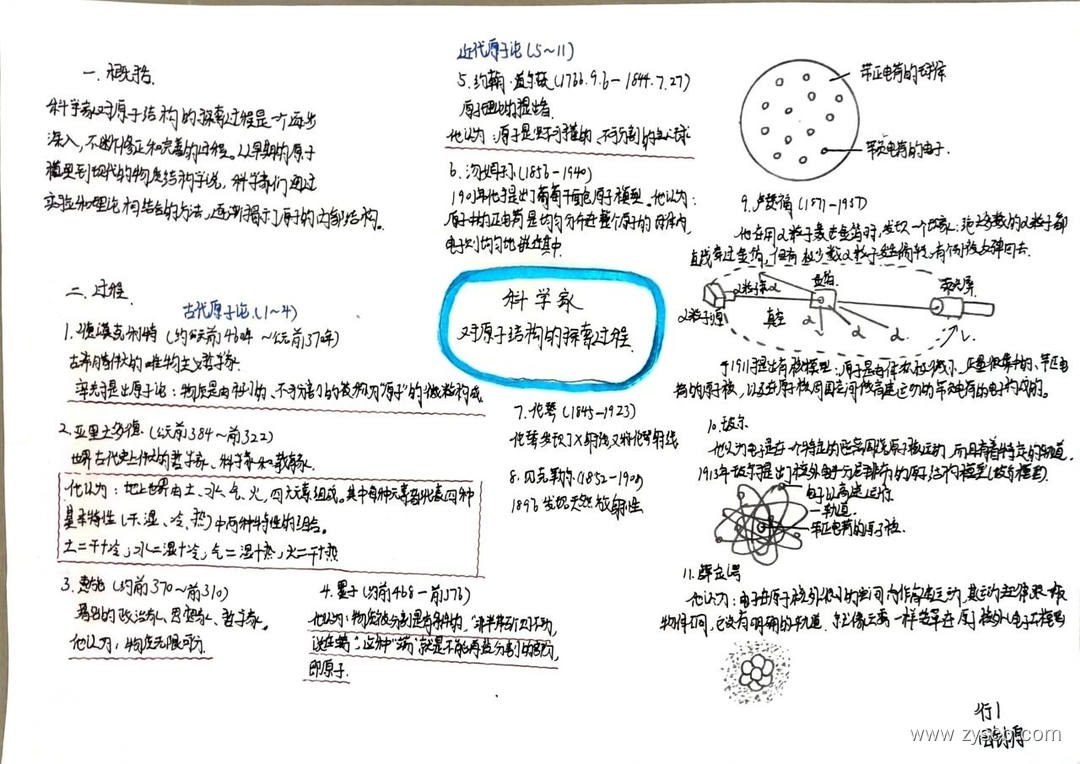 一. 概括.
科学家对原子结构的探索过程是一个逐步
深入,不断修正和完善的过程。从早期的原子
模型到现代的物质结构学说,科学家们通过
实验和理论相结合的方法,逐渐揭示了原子的内部结构。
二. 过程.
古代原子论(1~4)
1.德谟克利特 (约公元前460年 ~公元前370年)
古希腊伟大的唯物主义哲学家.
率先提出原子论:物质是由
不可分割的被称为"原子"的微粒构成
2.亚里士多德(公元前384~前322)
世界古代史上伟大的哲学家、科学家和教育家.
他认为:地上世界由土、水、气、火,四大元素组成。其中每种元素都代表四种
基本特性(干、湿、冷、热)中两种特性的组合。
土=干+冷,水=湿+冷,气=湿+热,火=干+热
3.惠施(约前370~前310)
著名的政治家、思想家、哲学家。
他认为:物质无限可分
4.墨子(约前468-前376)
他认为:物质被分割是有条件的,
就是不能再被分割的部分,
即原子.
科学家
对原子结构的探索过程
近代原子论(5~11)
5.约翰·道尔顿(1766.9.6-1844.7.27)
原子理论的提出者.
他认为:原子是坚不可摧的、不可分割的实心球
6.汤姆孙(1856-1940)
他提出了葡萄干面包原子模型。他认为:
原子中的正电荷是均匀分布在整个原子的球体内,
电子则均匀地嵌在其中
7.伦琴(1845-1923)
伦琴发现了X射线,又称伦琴射线
8.贝克勒尔(1852-1908)
1896发现天然放射性
带正电荷的球体
带负电荷的电子.
9.卢瑟福(1871-1937)
他在用α粒子轰击金箔时,发现一个现象:绝大多数的α粒子都
直线穿过金箔,但有极少数α粒子发生偏转,有的被反弹回去.
α粒子束α
金箔
荧光屏
α粒子源
真空
α
α
α
于1911提出有核模型:原子是由体积极小、质量很集中的、带正电
荷的原子核,以及在原子核周围空间做高速运动的带负电荷的电子构成的。
10.玻尔
他认为电子是在一个特定的
围绕原子核运动,而且有着特定的轨道.
1913年玻尔提出了核外电子分层排布的原子结构模型(玻尔模型)
电子以高速运行.
轨道.
带正电荷的原子核.
11.薛定谔
他认为:电子在原子核外很小的空间内作高速运动,其运动规律跟一般
物体不同,它没有明确的轨道.就像云雾一样笼罩在原子核外,
www.zysoc.com